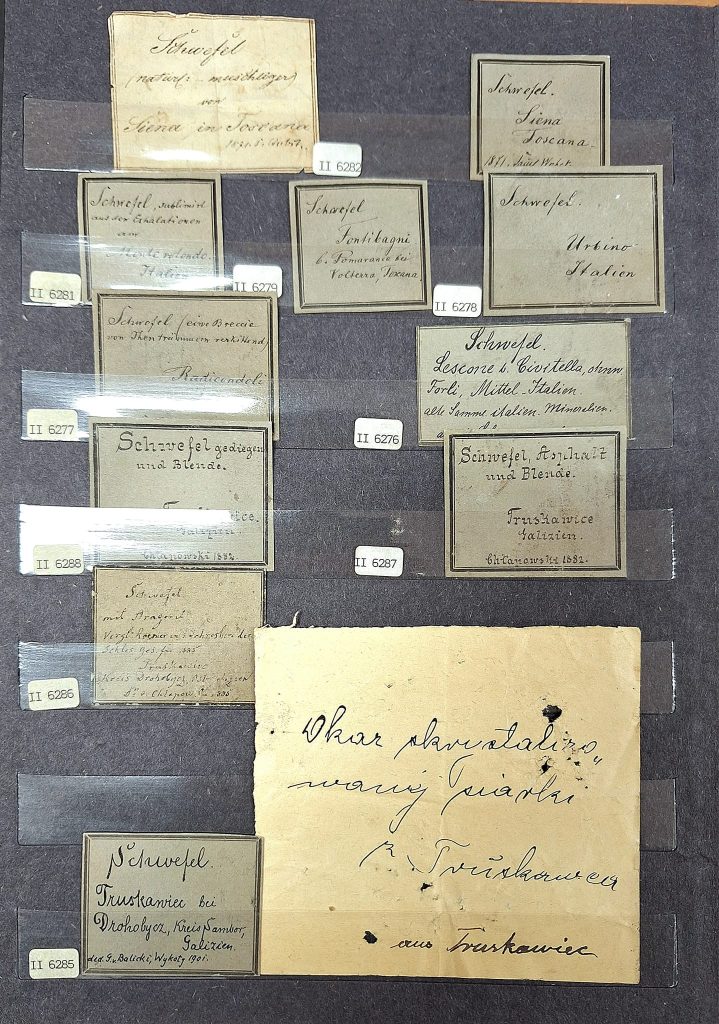 Schwefel
von
Siena in Toscana
II 6282
Schwefel.
Siena
Toscana.
1871.
Schwefel, sublimirt
aus den Exhalationen
am
Monte rotondo.
Italien
II 6281
Schwefel
Fontibagni
b. Pomarance bei
Volterra, Toscana
II 6279
Schwefel.
Urbino
Italien
II 6278
Schwefel (eine Breccie
von Thontrümmern verkittend)
Radicondoli
II 6277
Schwefel.
Lescone b. Civitella,
Forli, Mittel-Italien.
alte Samml. italien. Mineralien.
II 6276
Schwefel gediegen
und Blende.
Galizien.
Chłapowski 1882.
II 6288
Schwefel, Asphalt
und Blende.
Truskawice
Galizien.
Chłapowski 1882.
II 6287
Schwefel
mit Aragonit
Schles. Ges. für
Truskawiec
Kreis Drohobycz,
II 6286
Okaz skrystalizo„
wanej siarki
z Truskawca
aus Truskawiec
Schwefel.
Truskawiec bei
Drohobycz, Kreis Sambor,
Galizien.
ded. G. v. Balicki, Wykoty 1901.
II 6285